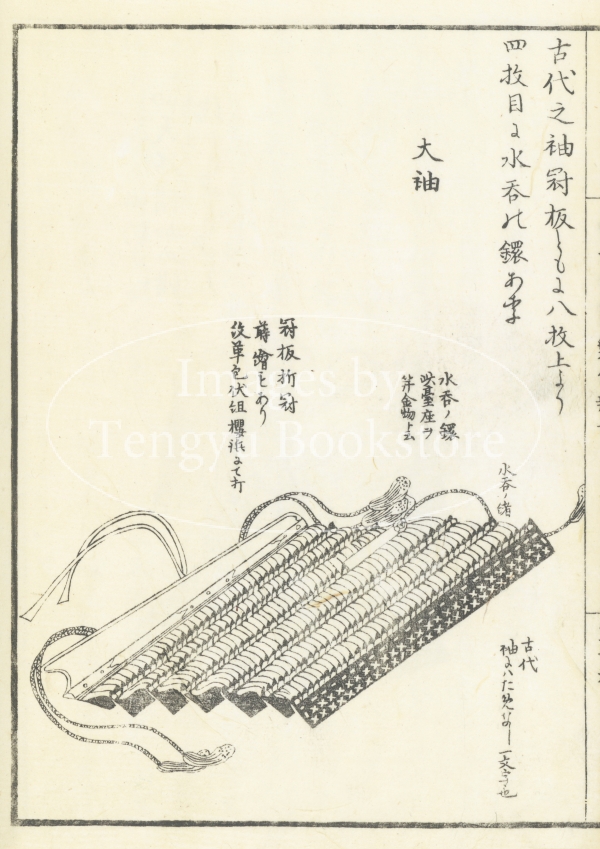 古代之袖冠板ともに八枚上より
四枚目に水呑の鐶あり
大袖
水呑ノ鐶
此臺座ヲ
笄金物ト云
冠板折冠
蒔繪もあり
以革包伏組櫻鋲にて打
水呑ノ緒
古代
一文字也
Images by
Tengyu Bookstore